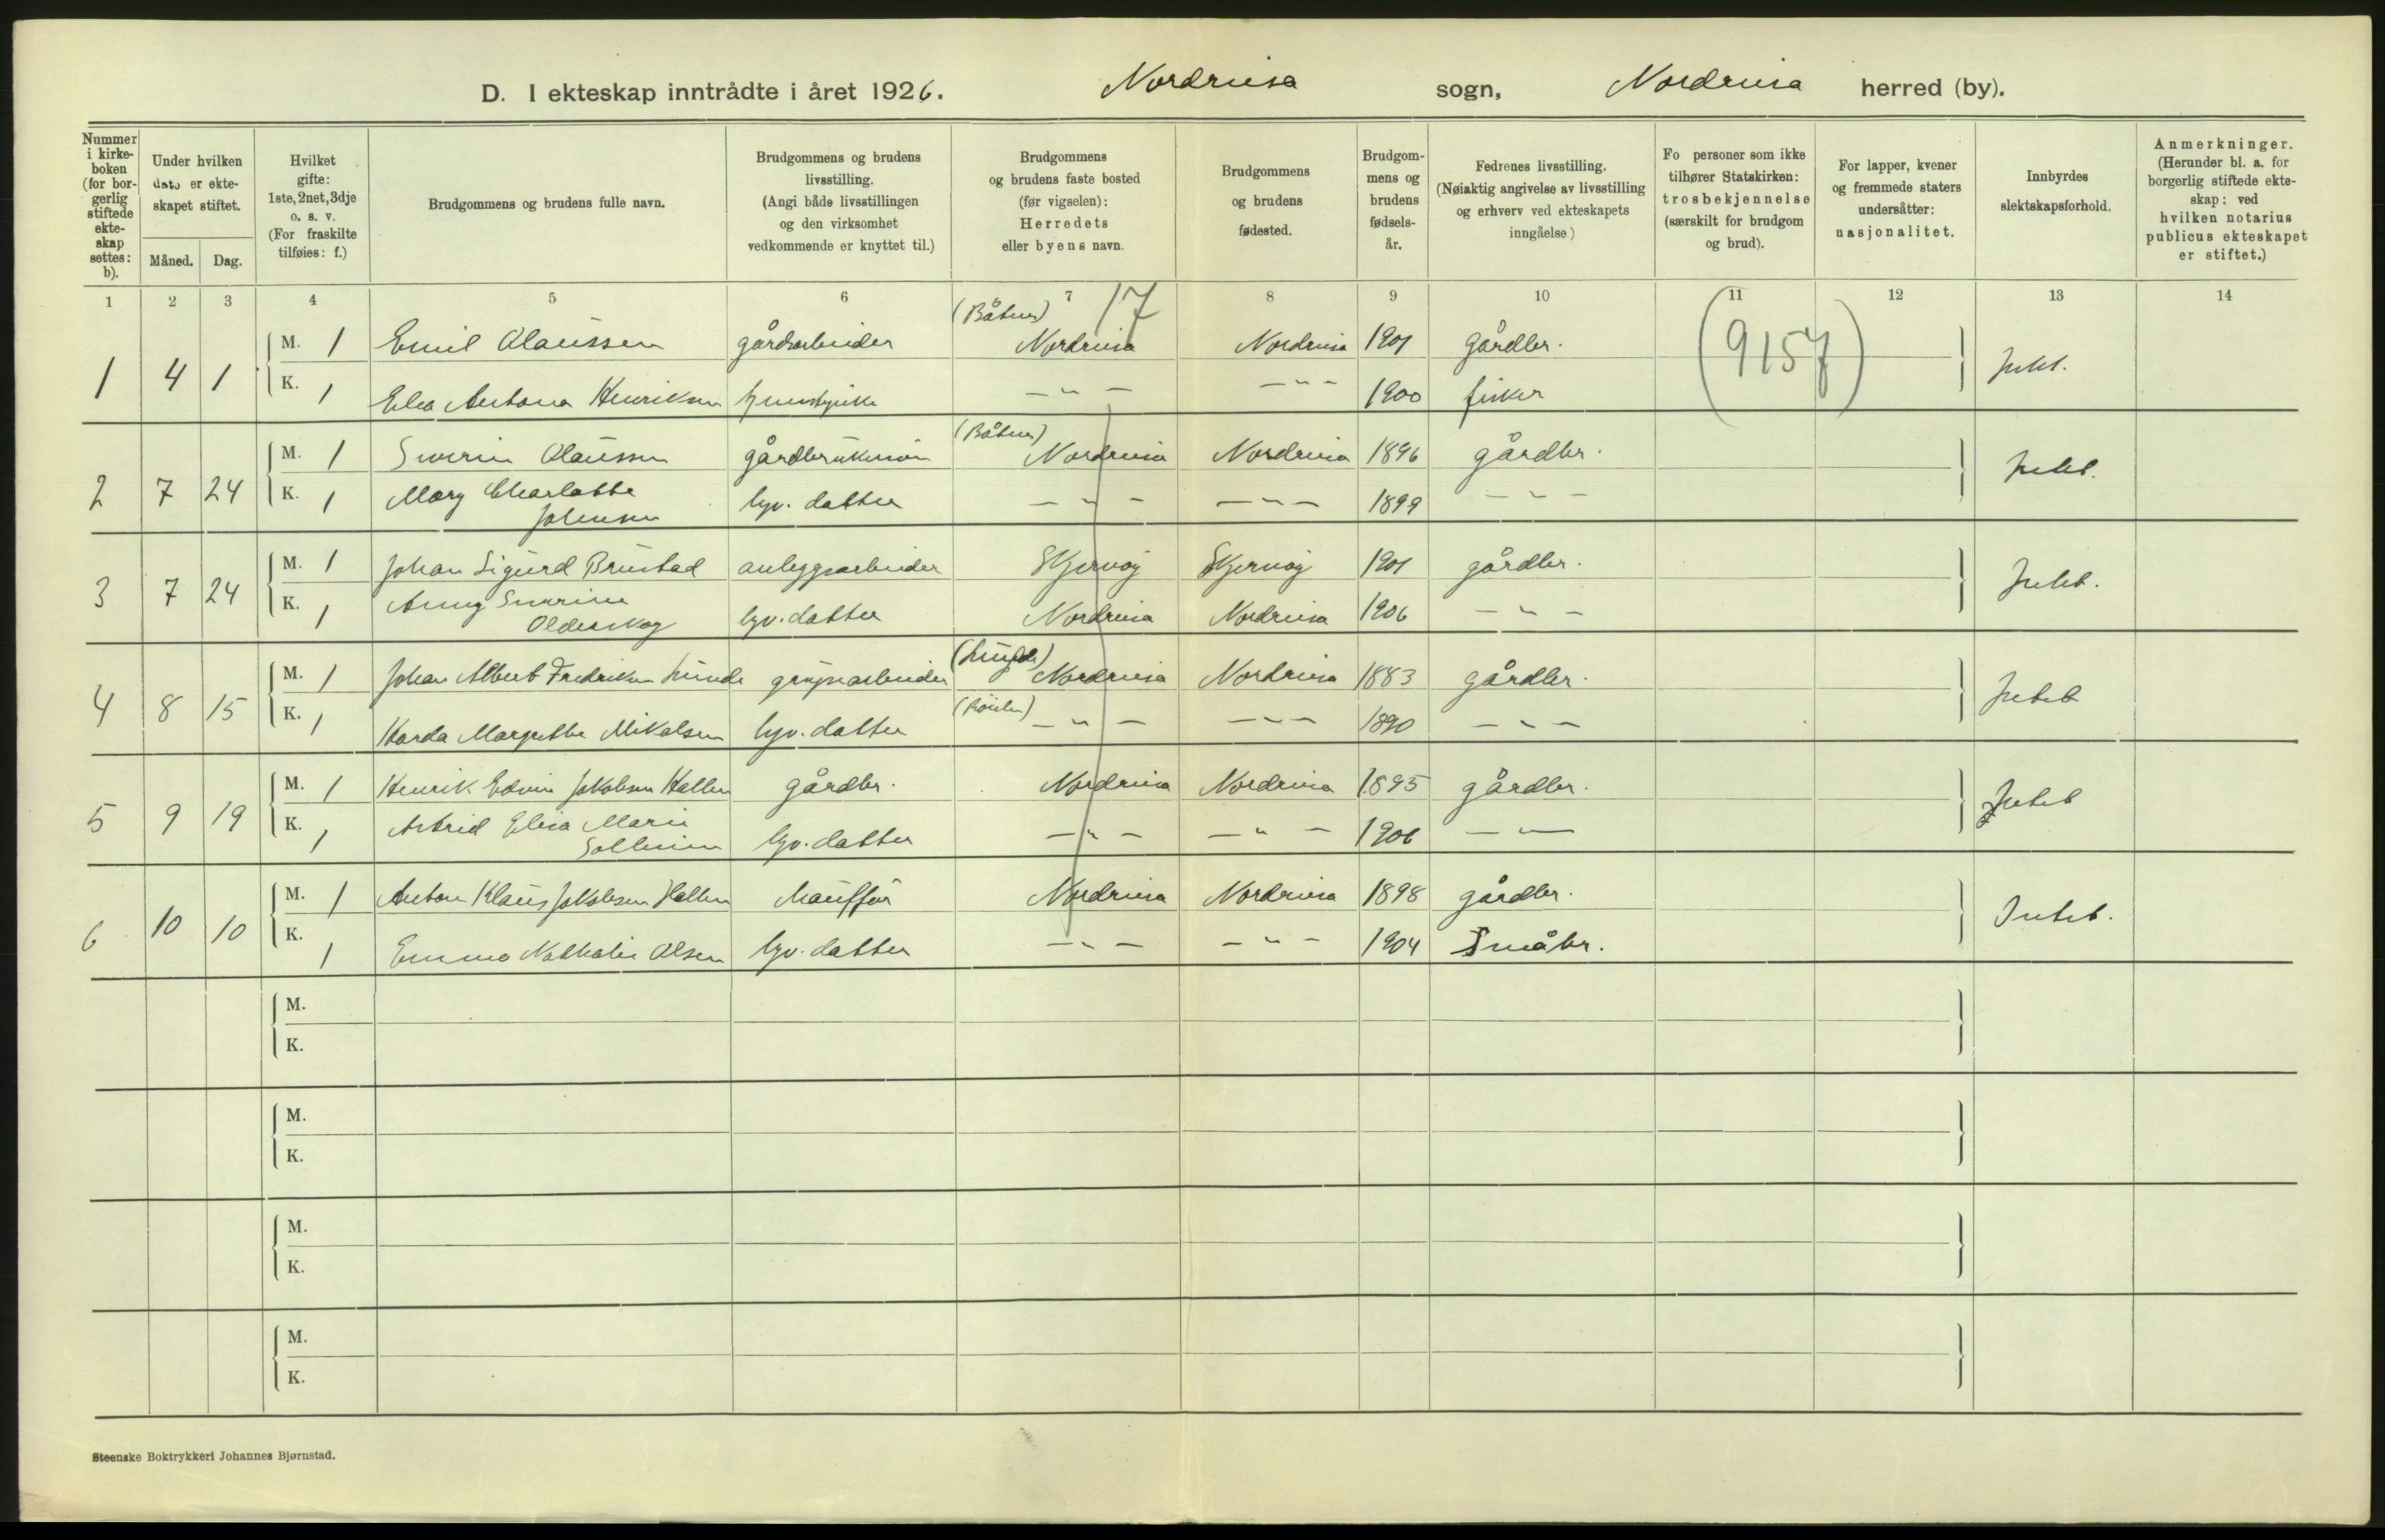 D. I ekteskap inntrådte i året 1926. Nordreisa sogn, Nordreisa herred (by).
Nummer i kirkeboken (for borgerlig stiftede ekteskap settes: b).
Under hvilken dato er ekteskapet stiftet.
Måned. Dag.
Hvilket gifte: 1ste, 2net, 3dje o. s. v. (For fraskilte tilføies: f.)
Brudgommens og brudens fulle navn.
Brudgommens og brudens livsstilling. (Angi både livsstillingen og den virksomhet vedkommende er knyttet til.)
Brudgommens og brudens faste bosted (før vigselen): Herredets eller byens navn.
Brudgommens og brudens fødested.
Brudgommens og brudens fødselsår.
Fedrenes livsstilling. (Nøiaktig angivelse av livsstilling og erhverv ved ekteskapets inngåelse)
Fo personer som ikke tilhører Statskirken: trosbekjennelse (særskilt for brudgom og brud).
For lapper, kvener og fremmede staters undersåtter: nasjonalitet.
Innbyrdes slektskapsforhold.
Anmerkninger. (Herunder bl. a. for borgerlig stiftede ekteskap: ved hvilken notarius publicus ekteskapet er stiftet.)
1 2 3 4 5 6 7 8 9 10 11 12 13 14
17
(9157)
1 4 1 M. 1 Emil Olaussen gårdsarbeider Nordreisa Nordreisa 1901 gårdbr. Intet.
K. 1 Antona Henriksen — " — — " — 1900 fisker
2 7 24 M. 1 Severin Olaussen gårdbruker Nordreisa Nordreisa 1896 gårdbr. Intet.
K. 1 Mary Charlotte Johansen hjv. datter — " — — " — 1899 — " —
3 7 24 M. 1 Johan Sigurd Brustad anleggsarbeider Skjervøy Skjervøy 1901 gårdbr. Intet.
K. 1 Anny Severine Olderskog hjv. datter Nordreisa Nordreisa 1906 — " —
4 8 15 M. 1 Johan Albert Fredriksen Lunde grusarbeider Nordreisa Nordreisa 1883 gårdbr. Intet
K. 1 Harda Margrethe Mikalsen hjv. datter — " — — " — 1890 — " —
5 9 19 M. 1 Henrik Edvin Jakobsen Hallen gårdbr. Nordreisa Nordreisa 1895 gårdbr. Intet
K. 1 Astrid Elisa Marie hjv. datter — " — — " — 1906 — " —
6 10 10 M. 1 Anton Klaus Jakobsen Hallen chauffør Nordreisa Nordreisa 1898 gårdbr. Intet.
K. 1 Emma Nathalie Olsen hjv. datter — " — — " — 1904 Småbr.
M.
K.
M.
K.
M.
K.
M.
K.
Steenske Boktrykkeri Johannes Bjørnstad.